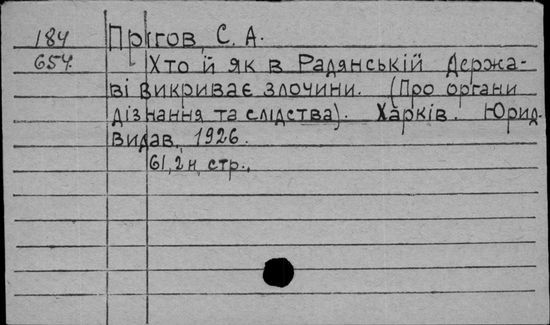 184 Прігов, С. А.
654. Хто й як в Радянській Держа-
ві викриває злочини. (Про органи
дізнання та слідства). Харків. Юрид.
Видав, 1926.
61, 2н, стр.,